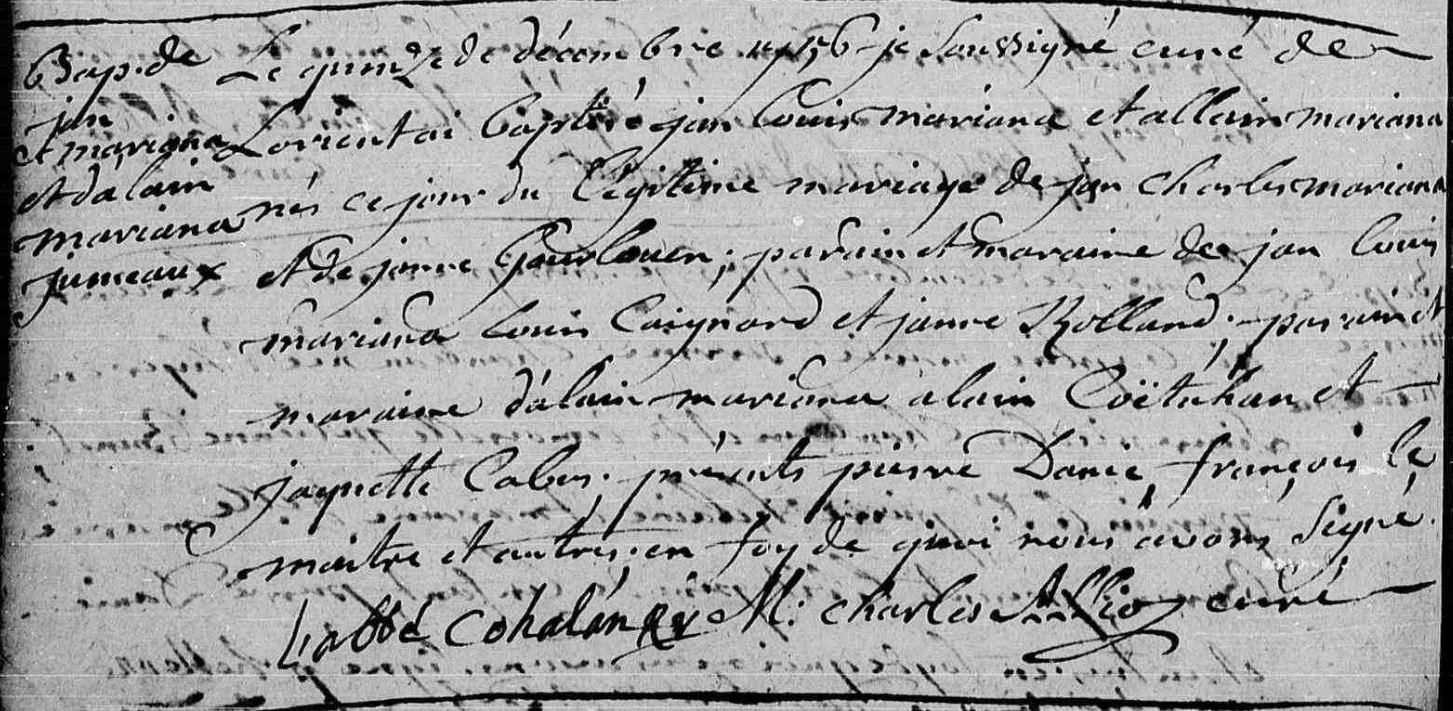 Bap. de
jan
et mariana
et d'alain
mariana
jumeaux
Le quinze de décembre 1756 je soussigné curé de
Lorient ai baptisé jan louis mariana et allain mariana
nés ce jour du légitime mariage de jan charles mariana
et de janne Gourlouen; parain et maraine de jan louis
mariana louis Caignard et janne Rolland; parain et
maraine d'alain mariana alain Coëtuhan et
jaquette Cabes; présents pierre Danic, françois le
maitre et autres; en foy de quoi nous avons signé
L'abbé Cohalan M: charles Allio curé